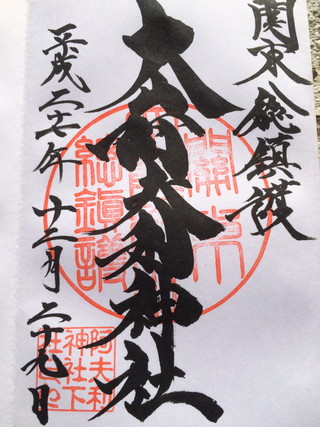 関東総鎮護
大山阿夫利神社
平成二十七年十二月二十九日
關東
總鎮護
阿夫利
神社下